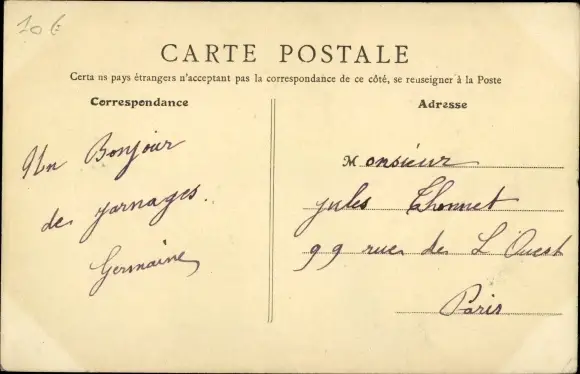 10 €
CARTE POSTALE
Certains pays étrangers n'acceptant pas la correspondance de ce côté, se renseigner à la Poste
Correspondance
Un Bonjour
de Jarnages.
Germaine
Adresse
Monsieur
Jules Thonnet
99 rue de L'Ouest
Paris